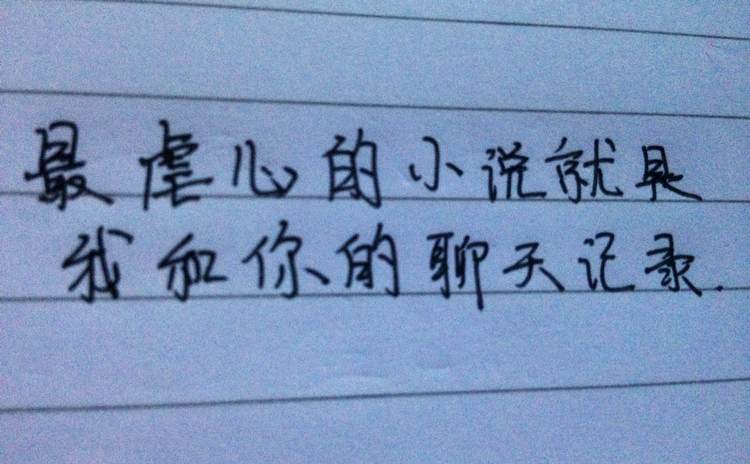 最虐心的小说就是
我和你的聊天记录.